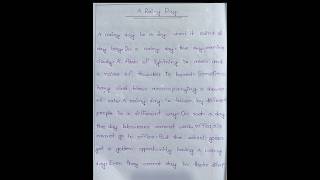 A Rainy Day
A rainy day is a day when it rains all
day long. In a rainy day the sky remains
cloudy. A flash of lightning is seen and
a noise of thunder is heard. Sometimes
a shower
of rain. A rainy day is taken by different
people in a different way. On such a day
the day labourers cannot work.
cannot go to office. But the school-goers
get a golden opportunity having a rainy
day. Even they cannot